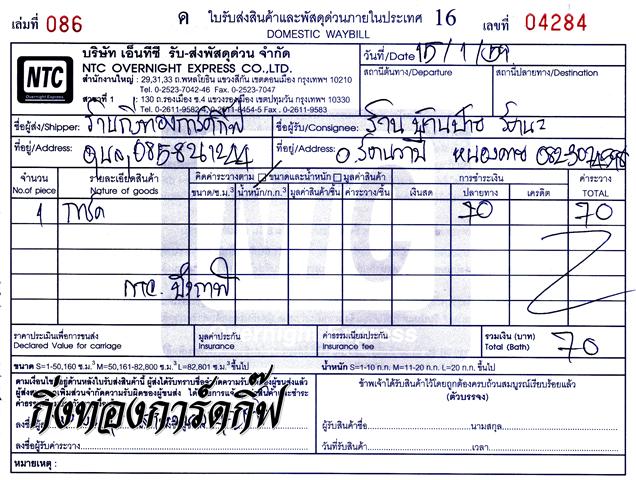 เล่มที่ 086
ค ใบรับส่งสินค้าและพัสดุด่วนภายในประเทศ 16
DOMESTIC WAYBILL
เลขที่ 04284
NTC
Overnight Express
บริษัท เอ็นทีซี รับ-ส่งพัสดุด่วน จำกัด
NTC OVERNIGHT EXPRESS CO.,LTD.
สำนักงานใหญ่ : 29,31,33 ถ.พหลโยธิน แขวงสนามบิน เขตดอนเมือง กรุงเทพฯ 10210
Tel. 0-2523-7042-46 Fax. 0-2523-7047
สาขาที่ 1 : 130 ถ.รองเมือง ซ.4 แขวงรองเมือง เขตปทุมวัน กรุงเทพฯ 10330
Tel. 0-2611-9582-4, 0-2611-8454-5 Fax . 0-2611-9583
วันที่/Date 15/1/59
สถานีต้นทาง/Departure สถานีปลายทาง/Destination
ชื่อผู้ส่ง/Shipper: ร้านกิ่งทองการ์ดกิ๊ฟ
ชื่อผู้รับ/Consignee: ร้าน
ที่อยู่/Address: อุบล
ที่อยู่/Address:
จำนวน No.of piece
รายละเอียดสินค้า Nature of goods
คิดค่าระวางตาม ขนาดและน้ำหนัก มูลค่าสินค้า
ขนาด/ซ.ม.³ น้ำหนัก/ก.ก. มูลค่าสินค้า/ชิ้น ค่าระวาง/ชิ้น
การชำระเงิน
เงินสด ปลายทาง เครดิต
ค่าระวาง TOTAL
1 การ์ด 70 70
ราคาประเมินเพื่อการขนส่ง
Declared Value for carriage
มูลค่าประกัน
Insurance
ค่าธรรมเนียมประกัน
Insurance fee
รวมเงิน (บาท)
Total (Bath) 70
ขนาด S=1-50,160 ซ.ม.³ M=50,161-82,800 ซ.ม.³ L=82,801 ซ.ม.³ ขึ้นไป
น้ำหนัก S=1-10 ก.ก. M=11-20 ก.ก. L=20 ก.ก. ขึ้นไป
กิ่งทองการ์ดกิ๊ฟ
ลงชื่อผู้รับค่าระวาง
ข้าพเจ้าได้รับสินค้าไว้โดยถูกต้องครบถ้วนสมบูรณ์เรียบร้อยแล้ว
(ตัวบรรจง)
ผู้รับสินค้าชื่อ นามสกุล
วันที่รับสินค้า เวลา
หมายเหตุ :